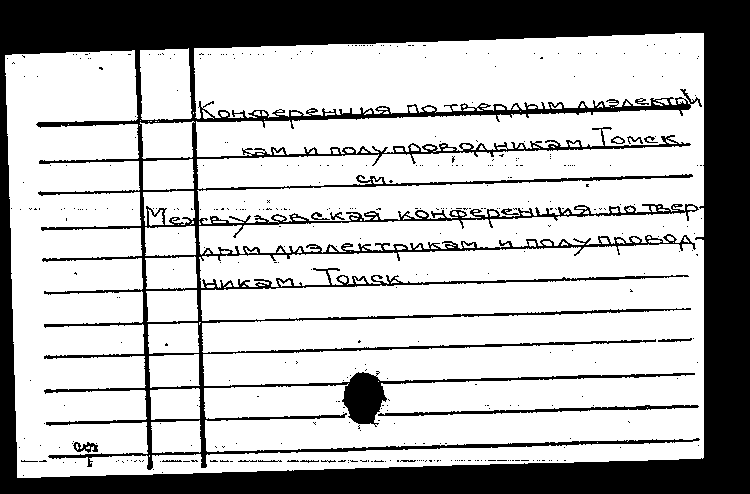 Конференция по твердым диэлектри
кам и полупроводникам. Томск.
см.
Межвузовская конференция по твер-
дым диэлектрикам и полупровод-
никам. Томск.